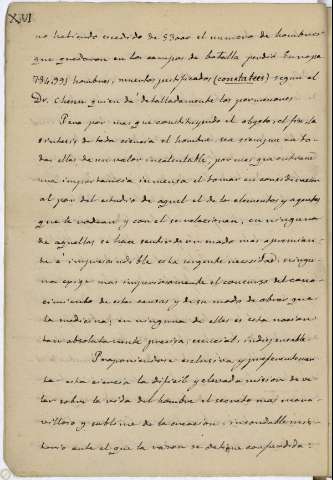 XVI
no habiendo escedido de 53000 el numero de hombres
que quedaron en los campos de batalla perdió Europa
784,991 hombres, muertos justificados (constatées) segun el
Dr. Chenu quien dá detalladamente los pormenores.
Pero por mas que constituyendo el objeto, el fin, la
sintesis de toda ciencia el hombre, sea siempre en to-
das ellas de un valor incalculable, por mas que entrañe
una importancia inmensa el tomar en consideracion
al par del estudio de aquel el de los elementos y agentes
que le rodean y con el se relacionan, en ninguna
de aquellas se hace sentir de un modo mas apremian-
te é imprescindible esta urgente necesidad: ningu-
na exige mas imperiosamente el concurso del cono-
cimiento de estas causas y de su modo de obrar que
la medicina; en ninguna de ellas es esta nocion
tan absolutamente precisa, esencial, indispensable.
Proponiendose esclusiva y preferentemen-
te esta ciencia la dificil y elevada mision de ve-
lar sobre la vida del hombre el secreto mas mara-
villoso y sublime de la creacion, insondable mis-
terio ante el que la razon se detiene confundida: